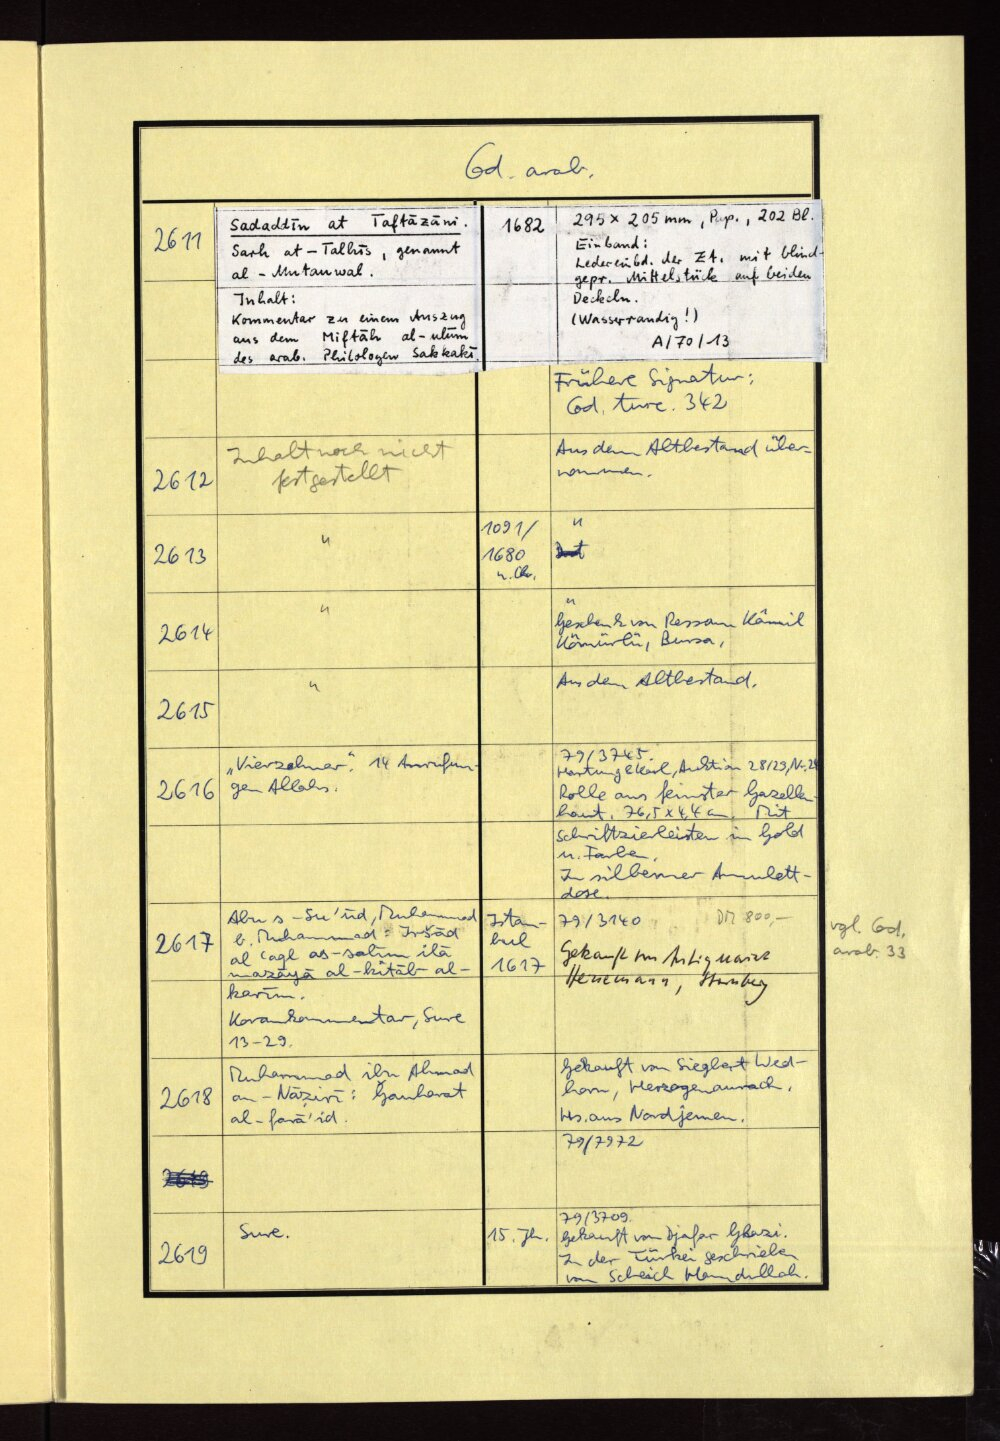 Cod. arab.
2611
Sadaddīn at Taftāzāni.
Sarh at-Talhīs, genannt
al-Mutauwal.
Inhalt:
Kommentar zu einem Auszug
aus dem Miftāh al-ulūm
des arab. Philologen Sakkaki.
1682
295 x 205 mm, Pap., 202 Bl.
Einband:
Ledereinbd. der Zt. mit blind-
gepr. Mittelstück auf beiden
Deckeln.
(Wasserrandig!)
A/70/13
Frühere Signatur:
Cod. turc. 342
2612
Inhalt noch nicht
festgestellt
Aus dem Altbestand über-
nommen.
2613
"
1091/
1680
n. Chr.
"
2614
"
"
Geschenk von Ressam Kâmil
Kömürlü, Bursa,
2615
"
Aus dem Altbestand.
2616
"Vierzehner". 14 Anrufun-
gen Allahs.
79/3745.
Hartung & Karl, Auktion 28/29, Nr. 24
Rolle aus feinster Gazellen-
haut. 76,5 x 4,4 cm. Mit
Schriftzierleisten in Gold
u. Farben.
In silberner Amulett-
dose.
2617
Abu s-Su'ūd, Muhammad
b. Muhammad: Iršād
al ʿaql as-salīm ilā
mazāyā al-kitāb al-
karīm.
Korankommentar, Sure
13-29.
Istan-
bul
1617
79/3140 DM 800,-
Gekauft von Antiquariat
Heinemann, Starnberg
vgl. Cod.
arab. 33
2618
Muhammad ibn Ahmad
an-Nāẓirī: Ǧauharat
al-farā'id.
Gekauft von Sieglert Wed-
horn, Herzogenaurach.
Hs. aus Nordjemen.
79/7972
2619
2619
Sure.
15. Jh.
79/3709.
Gekauft von Djafar Ghazi.
In der Türkei geschrieben
von Scheich Hamdullah.